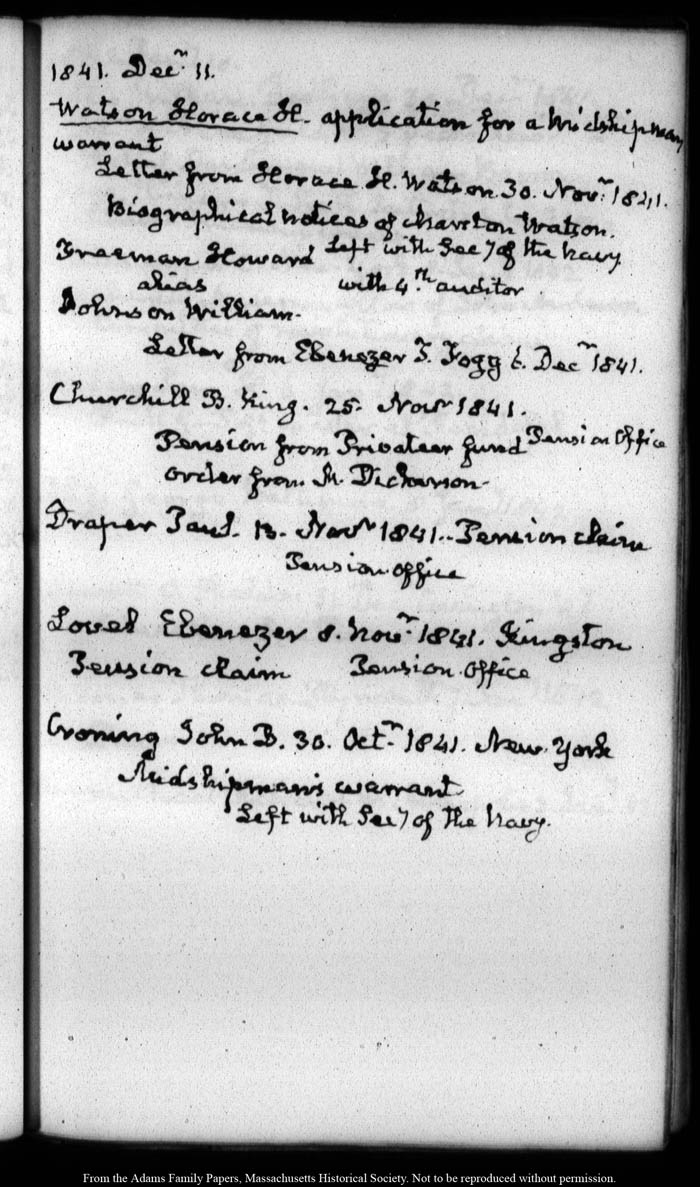 1841. Decr. 11.
Watson Horace H. application for a Midshipman
warrant
Letter from Horace H. Watson 30. Novr. 1841.
Biographical notices of Marston Watson.
Left with Secy of the Navy
Freeman Howard
alias with 4th. auditor
Johnson William.
Letter from Ebenezer T. Fogg 6. Decr. 1841.
Churchill B. King. 25. Novr 1841.
Pension from Privateer fund Pension Office
order from M. Dickerson.
Draper Paul. 13. Novr 1841. Pension claim
Pension office
Lovel Ebenezer 8. Novr. 1841. Kingston
Pension claim Pension Office
Croning John B. 30. Octr. 1841. New York
Midshipman's warrant
Left with Secy of the Navy.
From the Adams Family Papers, Massachusetts Historical Society. Not to be reproduced without permission.